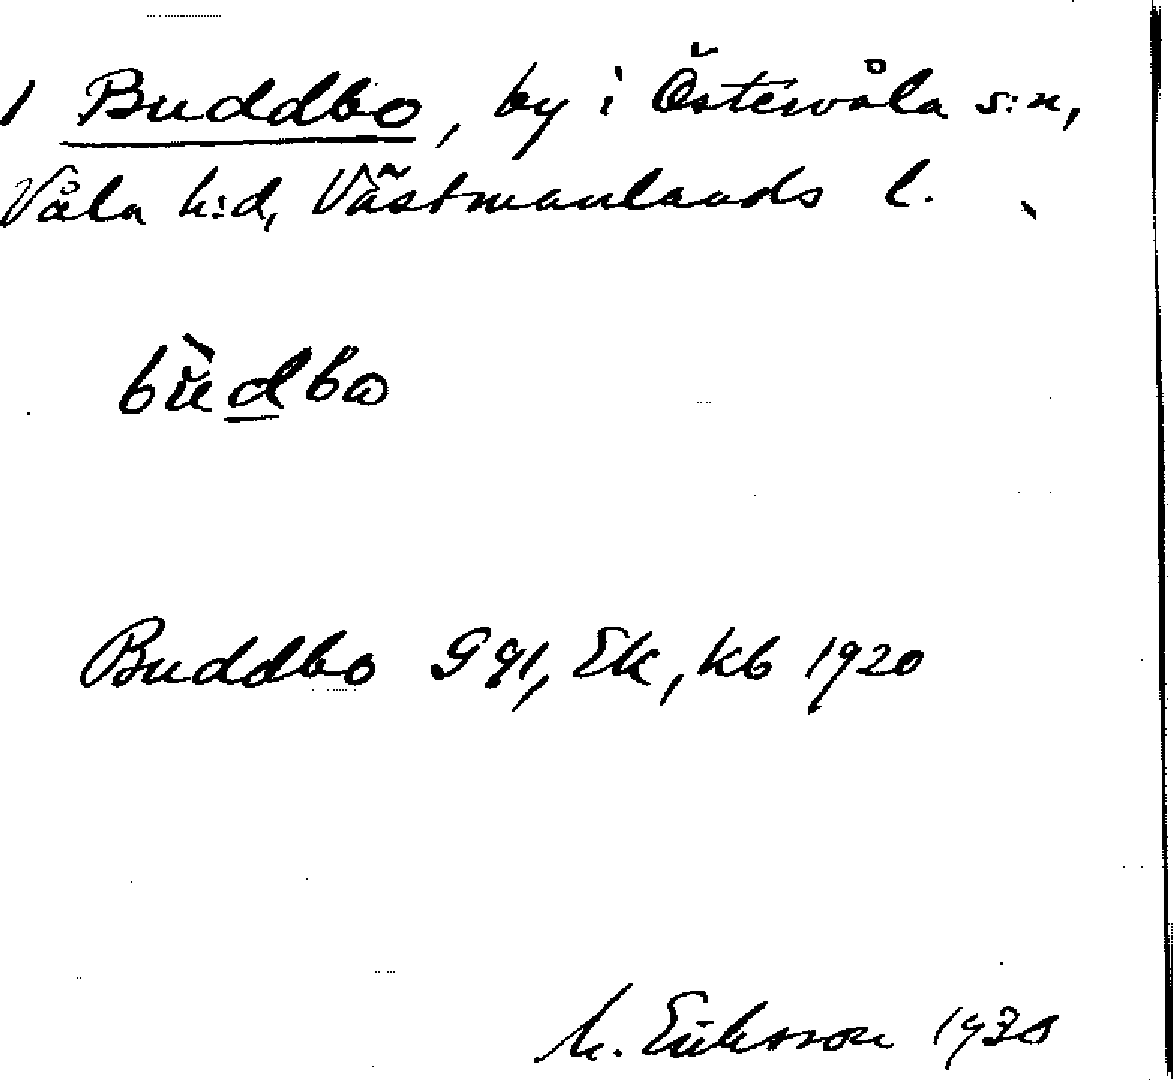 1 Buddbo, by i Östervåla s:n,
Våla h:d, Västmanlands l.
bùdbo
Buddbo Ggl, Ek, kb 1920
M. Eriksson 1930